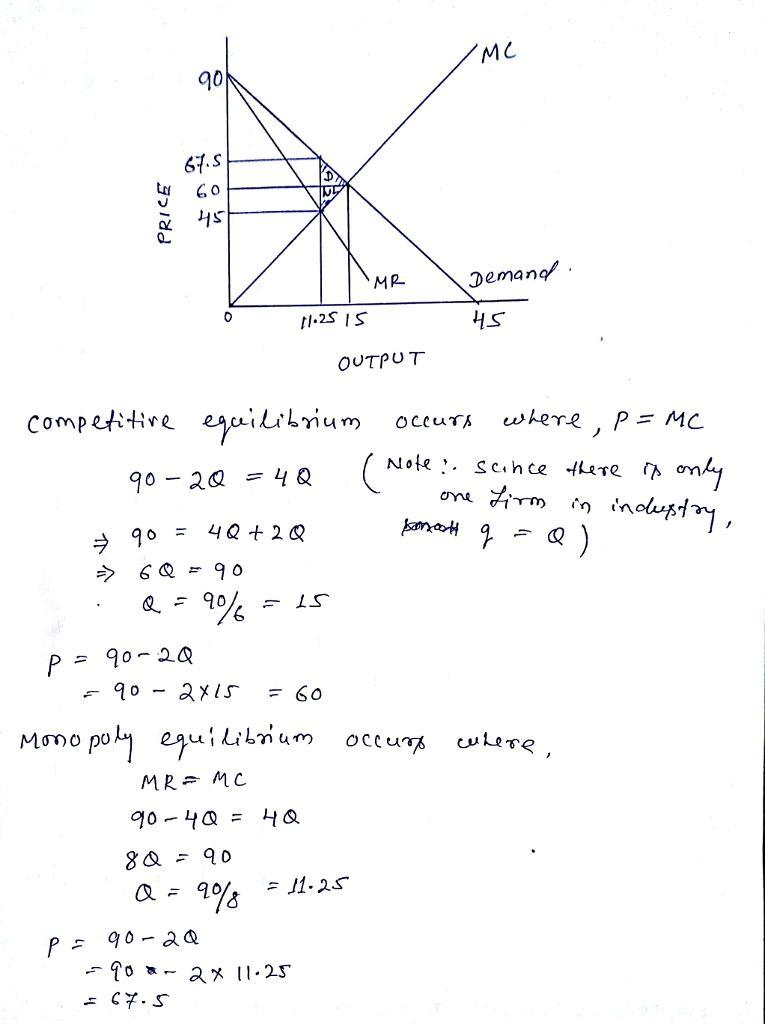 MC
90
67.5
60
45
PRICE
D
WL
MR
Demand.
0
11.25 15
45
OUTPUT
competitive equilibrium occurs where, P = MC
90 - 2Q = 4Q (Note:. scince there is only
one firm in industry,
⇒ 90 = 4Q + 2Q
q = Q)
⇒ 6Q = 90
Q = 90/6 = 15
P = 90 - 2Q
= 90 - 2×15 = 60
Monopoly equilibrium occurs where,
MR = MC
90 - 4Q = 4Q
8Q = 90
Q = 90/8 = 11.25
P = 90 - 2Q
= 90 - 2 × 11.25
= 67.5